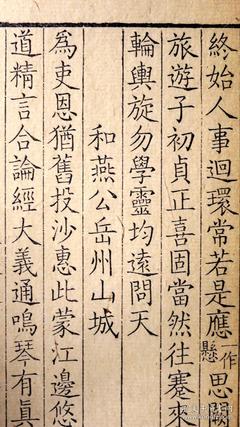 終始人事迴環常若是應一作懸思闕
旅遊子初貞正喜固當然往蹇來
輪輿旋勿學靈均遠問天
和燕公岳州山城
爲吏恩猶舊投沙惠此蒙江邊悠
道精言合論經大義通鳴琴有真